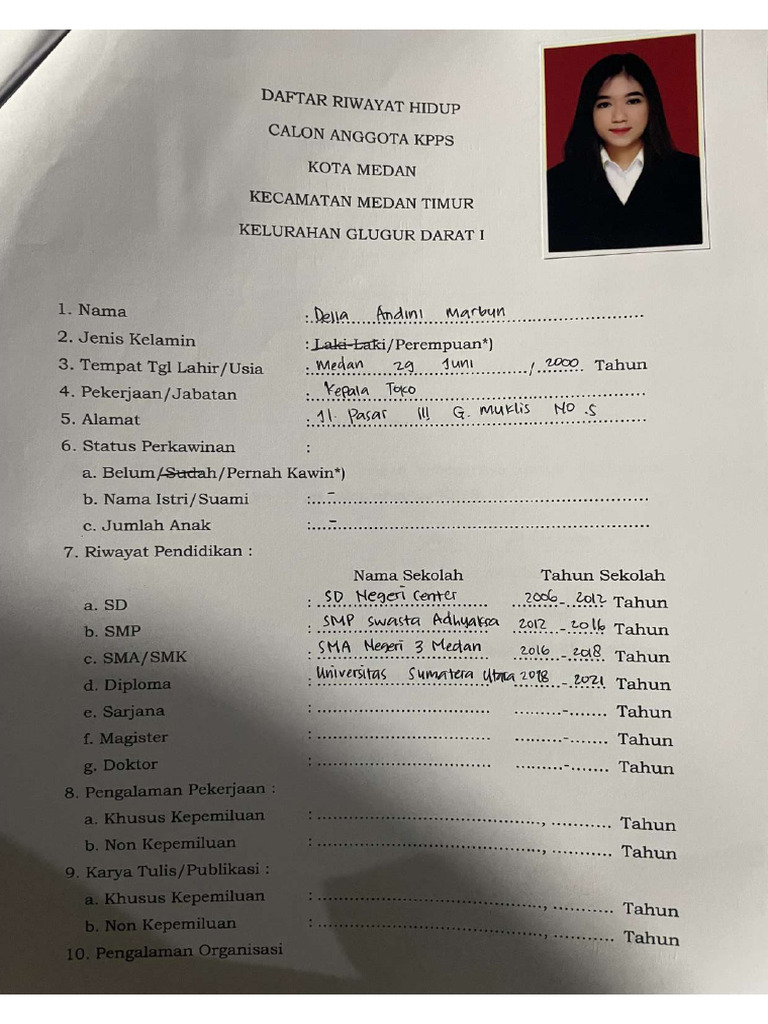 DAFTAR RIWAYAT HIDUP
CALON ANGGOTA KPPS
KOTA MEDAN
KECAMATAN MEDAN TIMUR
KELURAHAN GLUGUR DARAT I
1. Nama : Della Andini Marbun
2. Jenis Kelamin : Laki-Laki/Perempuan*)
3. Tempat Tgl Lahir/Usia : Medan 29 Juni / 2000 Tahun
4. Pekerjaan/Jabatan : Kepala Toko
5. Alamat : Jl. Pasar III G. Muklis No .5
6. Status Perkawinan :
a. Belum/Sudah/Pernah Kawin*)
b. Nama Istri/Suami : -
c. Jumlah Anak : -
7. Riwayat Pendidikan :
Nama Sekolah Tahun Sekolah
a. SD : SD Negeri Center 2006 - 2012 Tahun
b. SMP : SMP Swasta Adhyaksa 2012 - 2016 Tahun
c. SMA/SMK : SMA Negeri 3 Medan 2016 - 2018 Tahun
d. Diploma : Universitas Sumatera Utara 2018 - 2021 Tahun
e. Sarjana : .......... - ....... Tahun
f. Magister : .......... - ....... Tahun
g. Doktor : .......... - ....... Tahun
8. Pengalaman Pekerjaan :
a. Khusus Kepemiluan : .........., .......... Tahun
b. Non Kepemiluan : .........., .......... Tahun
9. Karya Tulis/Publikasi :
a. Khusus Kepemiluan : .........., .......... Tahun
b. Non Kepemiluan : .........., .......... Tahun
10. Pengalaman Organisasi